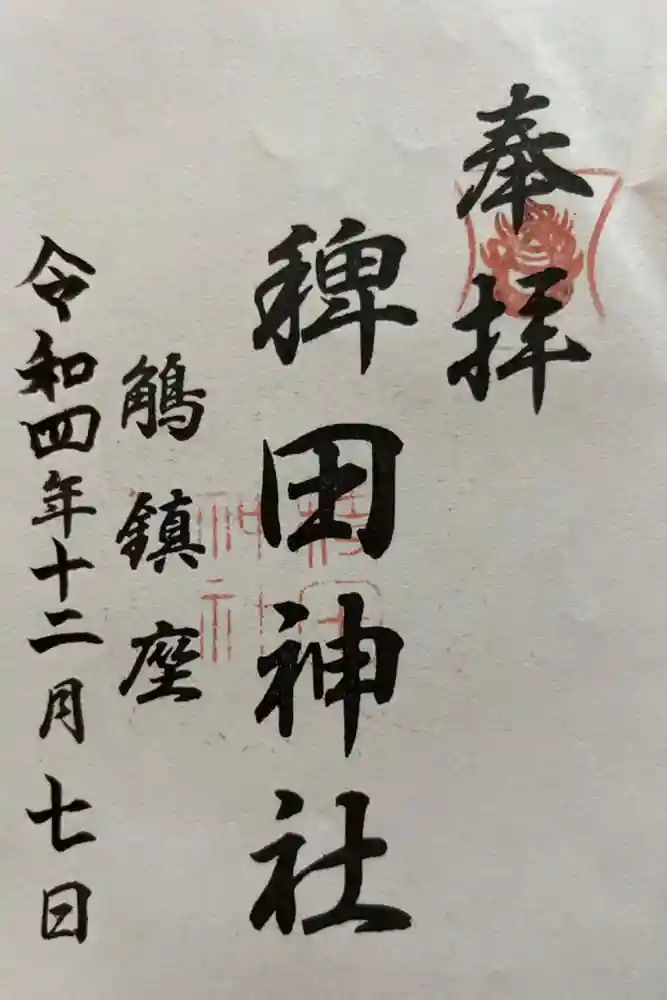 奉拝
稗田神社
鵤鎮座
令和四年十二月七日
稗田
神社